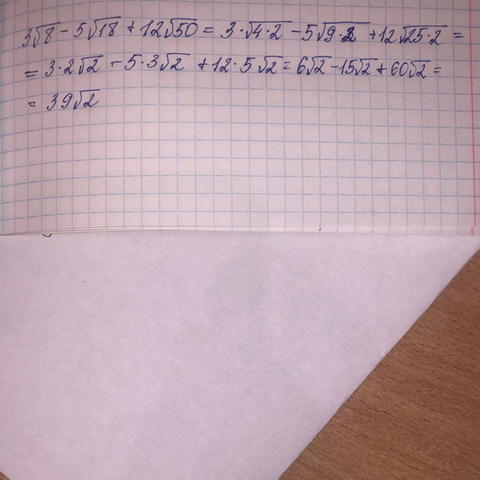 3√8 - 5√18 + 12√50 = 3·√4·2 - 5√9·2 + 12√25·2 =
= 3·2√2 - 5·3√2 + 12·5√2 = 6√2 - 15√2 + 60√2 =
= 39√2